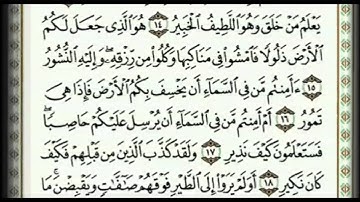 يَعْلَمُ مَنْ خَلَقَ وَهُوَ اللَّطِيفُ الْخَبِيرُ ١٤ هُوَ الَّذِي جَعَلَ لَكُمُ
الْأَرْضَ ذَلُولًا فَامْشُوا فِي مَنَاكِبِهَا وَكُلُوا مِن رِّزْقِهِ ۖ وَإِلَيْهِ النُّشُورُ
١٥ ءَأَمِنتُم مَّن فِي السَّمَاءِ أَن يَخْسِفَ بِكُمُ الْأَرْضَ فَإِذَا هِيَ
تَمُورُ ١٦ أَمْ أَمِنتُم مَّن فِي السَّمَاءِ أَن يُرْسِلَ عَلَيْكُمْ حَاصِبًا ۖ
فَسَتَعْلَمُونَ كَيْفَ نَذِيرِ ١٧ وَلَقَدْ كَذَّبَ الَّذِينَ مِن قَبْلِهِمْ فَكَيْفَ
كَانَ نَكِيرِ ١٨ أَوَلَمْ يَرَوْا إِلَى الطَّيْرِ فَوْقَهُمْ صَافَّاتٍ وَيَقْبِضْنَ ۚ مَا